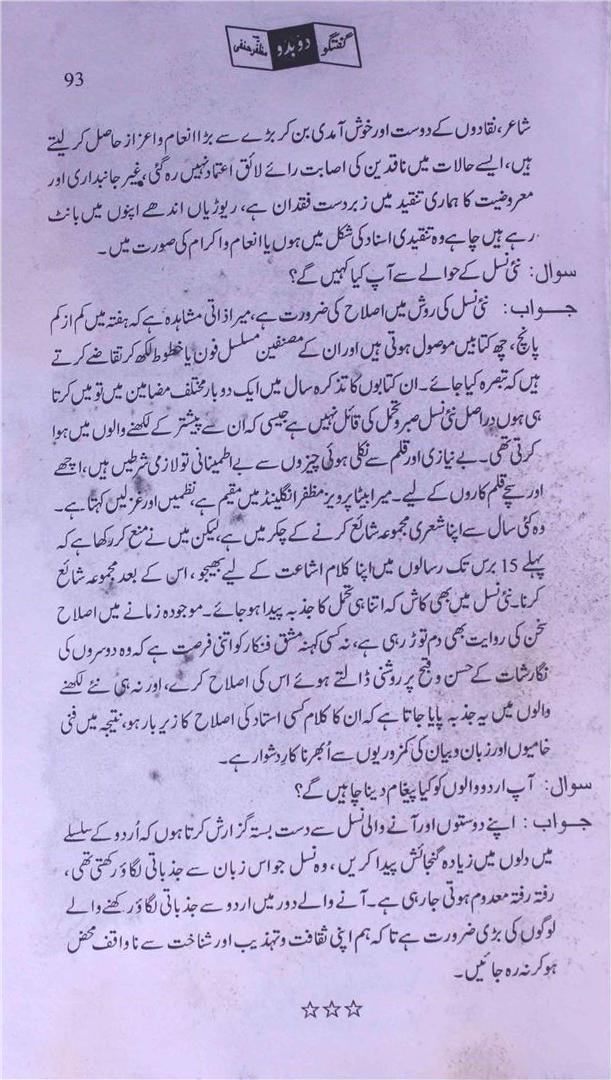 گفتگو دوبدو مظفر حنفی
93
شاعر، نقادوں کے دوست اور خوش آمدی بن کر بڑے سے بڑا انعام و اعزاز حاصل کر لیتے
ہیں، ایسے حالات میں ناقدین کی اصابت رائے لائق اعتماد نہیں رہ گئی، غیر جانبداری اور
معروضیت کا ہماری تنقید میں زبردست فقدان ہے، ریوڑیاں اندھے اپنوں میں بانٹ
رہے ہیں چاہے وہ تنقیدی اسناد کی شکل میں ہوں یا انعام و اکرام کی صورت میں۔
سوال: نئی نسل کے حوالے سے آپ کیا کہیں گے؟
جواب: نئی نسل کی روش میں اصلاح کی ضرورت ہے، میرا ذاتی مشاہدہ ہے کہ ہفتہ میں کم از کم
پانچ، چھ کتابیں موصول ہوتی ہیں اور ان کے مصنفین مسلسل فون یا خطوط لکھ کر تقاضے کرتے
ہیں کہ تبصرہ کیا جائے۔ ان کتابوں کا تذکرہ سال میں ایک دو بار مختلف مضامین میں تو میں کرتا
ہی ہوں دراصل نئی نسل صبر و تحمل کی قائل نہیں ہے جیسی کہ ان سے پیشتر کے لکھنے والوں میں ہوا
کرتی تھی۔ بے نیازی اور قلم سے نکلی ہوئی چیزوں سے بے اطمینانی تو لازمی شرطیں ہیں، اچھے
اور سچے قلم کاروں کے لیے۔ میرا بیٹا پرویز مظفر انگلینڈ میں مقیم ہے، نظمیں اور غزلیں کہتا ہے۔
وہ کئی سال سے اپنا شعری مجموعہ شائع کرنے کے چکر میں ہے، لیکن میں نے منع کر رکھا ہے کہ
پہلے 15 برس تک رسالوں میں اپنا کلام اشاعت کے لیے بھیجو، اس کے بعد مجموعہ شائع
کرنا۔ نئی نسل میں بھی کاش کہ اتنا ہی تحمل کا جذبہ پیدا ہو جائے۔ موجودہ زمانے میں اصلاح
سخن کی روایت بھی دم توڑ رہی ہے، نہ کسی کہنہ مشق فنکار کو اتنی فرصت ہے کہ وہ دوسروں کی
نگارشات کے حسن و قبح پر روشنی ڈالتے ہوئے اس کی اصلاح کرے، اور نہ ہی نئے لکھنے
والوں میں یہ جذبہ پایا جاتا ہے کہ ان کا کلام کسی استاد کی اصلاح کا زیر بار ہو، نتیجہ میں فنی
خامیوں اور زبان و بیان کی کمزوریوں سے اُبھرنا کارِ دشوار ہے۔
سوال: آپ اردو والوں کو کیا پیغام دینا چاہیں گے؟
جواب: اپنے دوستوں اور آنے والی نسل سے دست بستہ گزارش کرتا ہوں کہ اُردو کے سلسلے
میں دلوں میں زیادہ گنجائش پیدا کریں، وہ نسل جو اس زبان سے جذباتی لگاؤ رکھتی تھی،
رفتہ رفتہ معدوم ہوتی جا رہی ہے۔ آنے والے دور میں اردو سے جذباتی لگاؤ رکھنے والے
لوگوں کی بڑی ضرورت ہے تا کہ ہم اپنی ثقافت و تہذیب اور شناخت سے ناواقف محض
ہو کر نہ رہ جائیں۔
☆☆☆